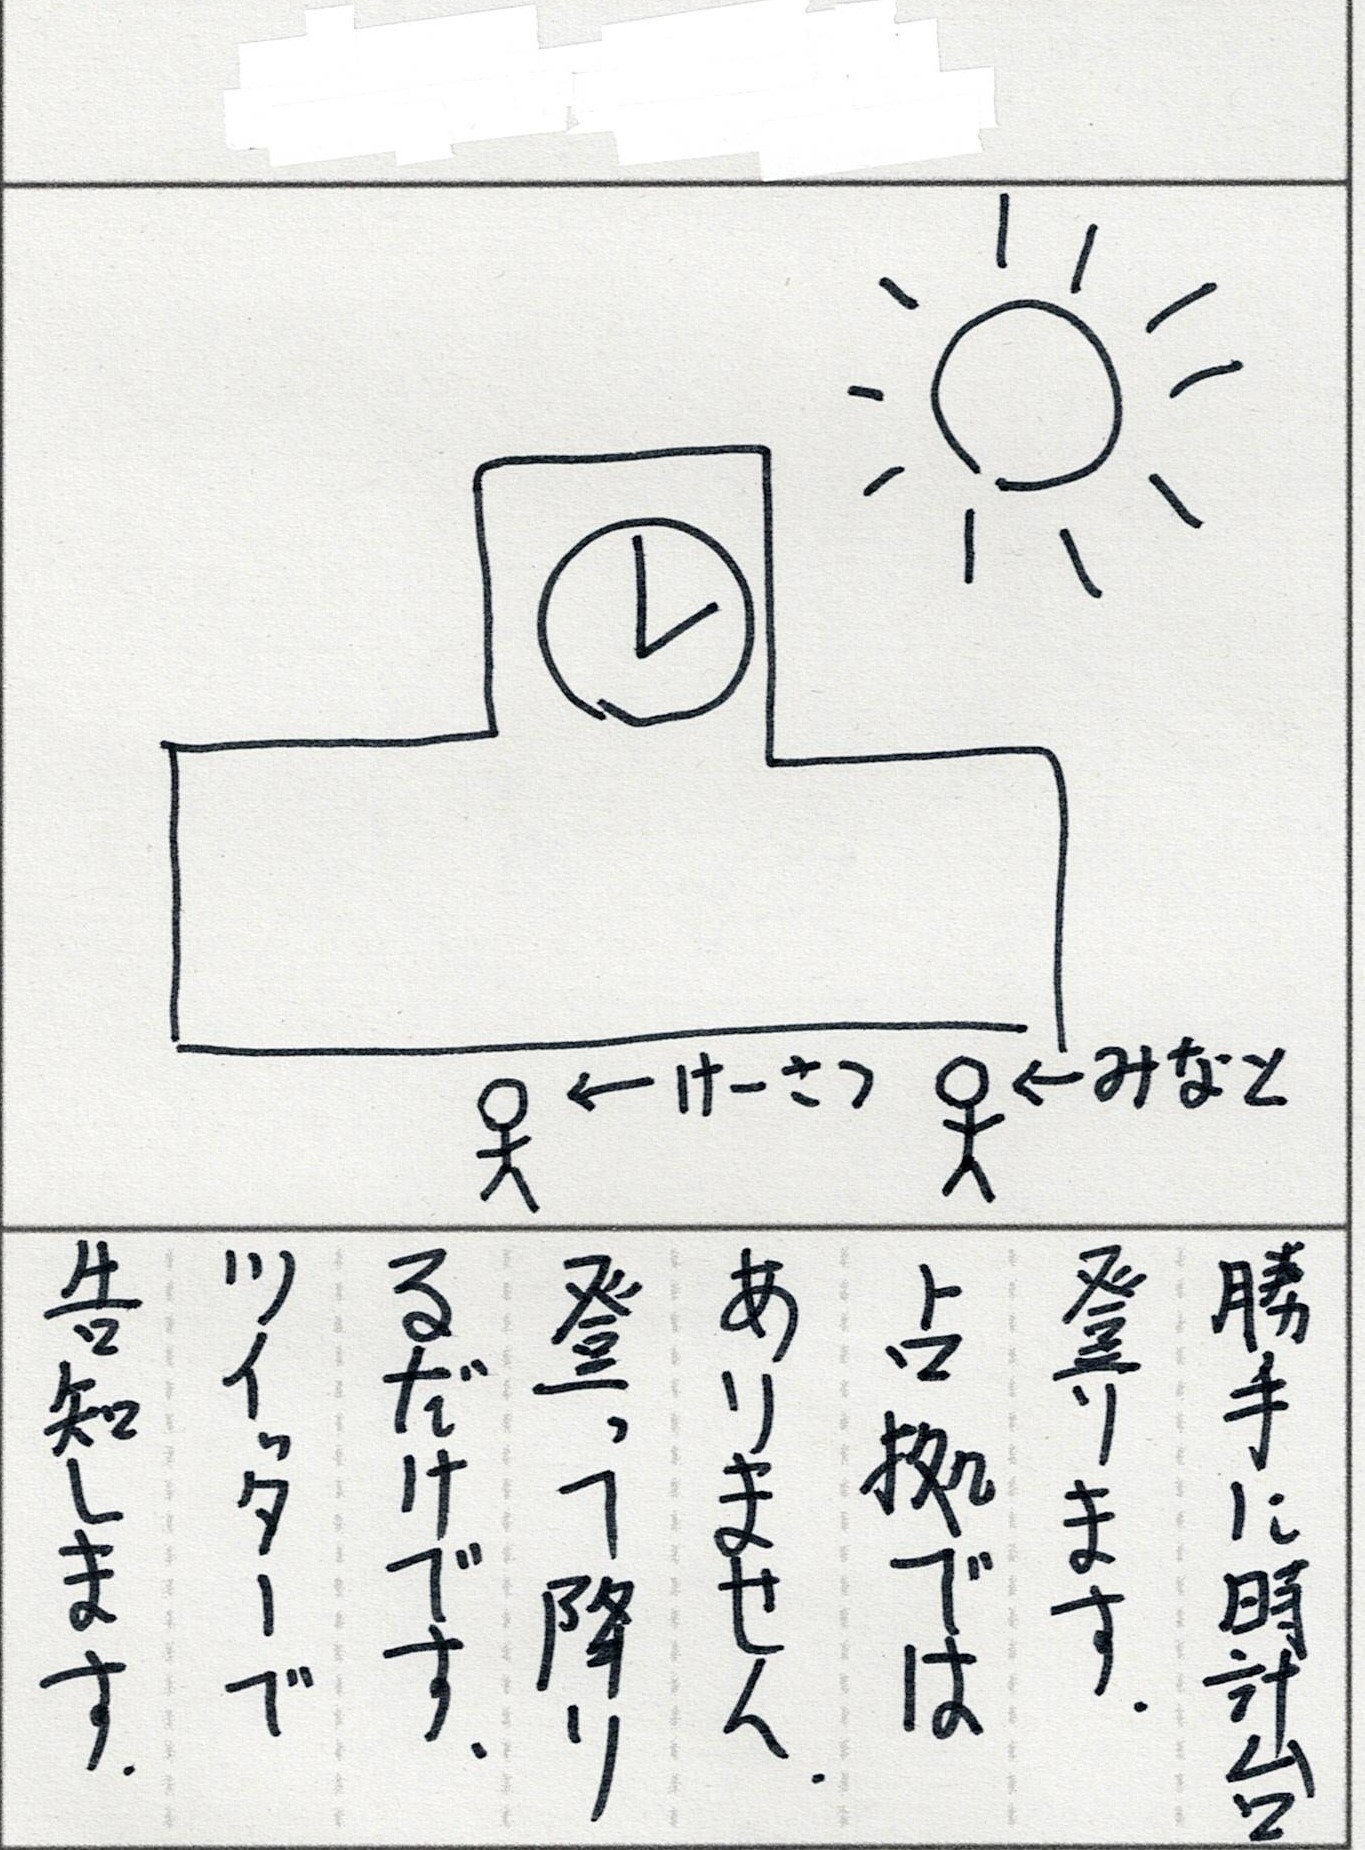 ←けーさつ
←みなと
勝手に時計台
登ります.
占拠では
ありません.
登って降り
るだけです.
ツイッターで
告知します.